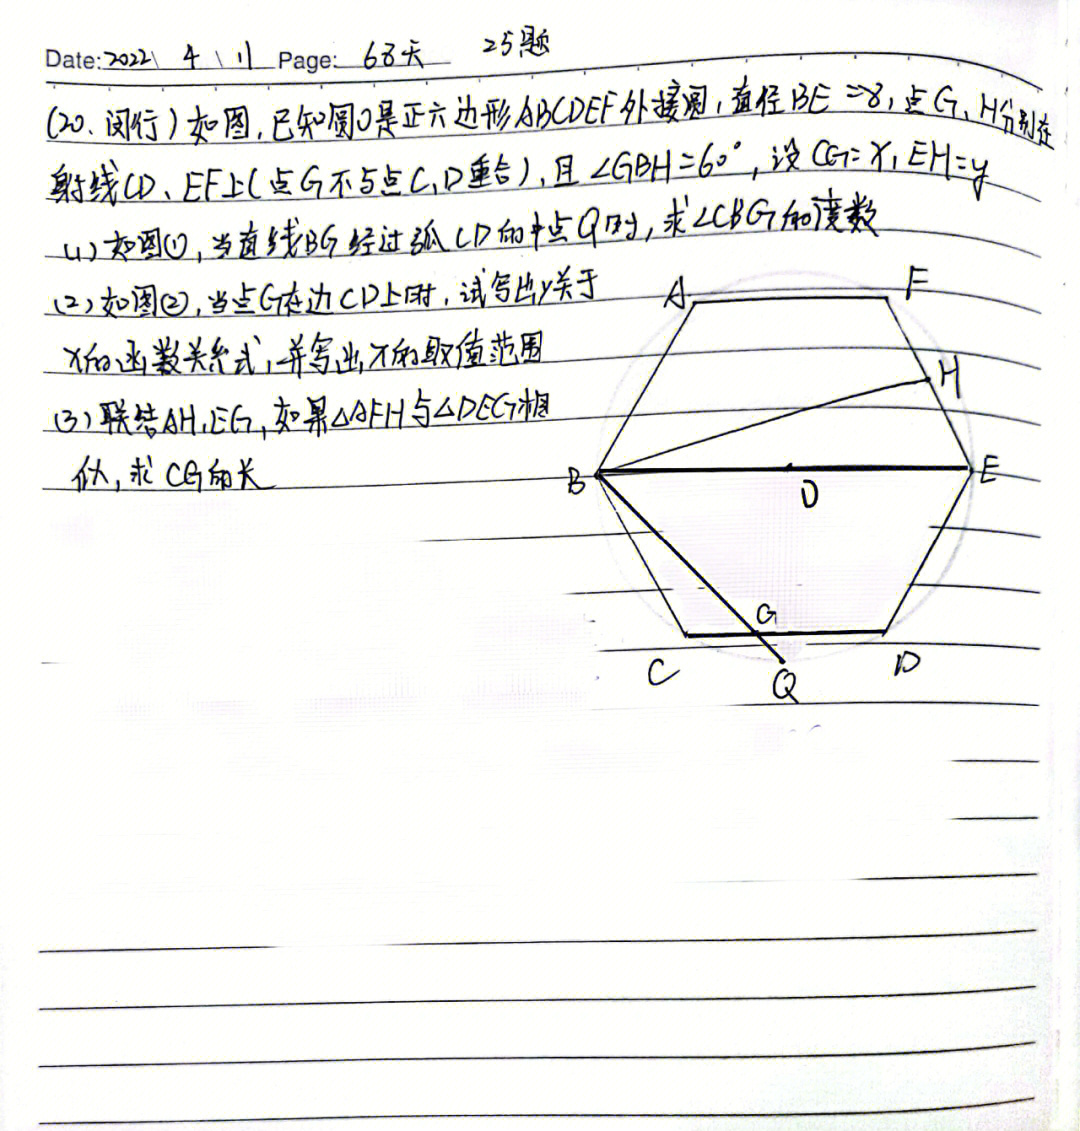 Date: 2022 \ 4 \ 11 Page: 68天 25题
(20、闵行) 如图, 已知圆O是正六边形ABCDEF外接圆, 直径BE=8, 点G、H分别在
射线CD、EF上(点G不与点C,D重合), 且∠GBH=60°, 设CG=x, EH=y
(1) 如图①, 当直线BG经过弧CD的中点Q时, 求∠CBG的度数
(2) 如图②, 当点G在边CD上时, 试写出y关于
x的函数关系式, 并写出x的取值范围
(3) 联结AH, EG, 如果△AFH与△DEG相
似, 求CG的长
A F
H
B O E
G
C D
Q